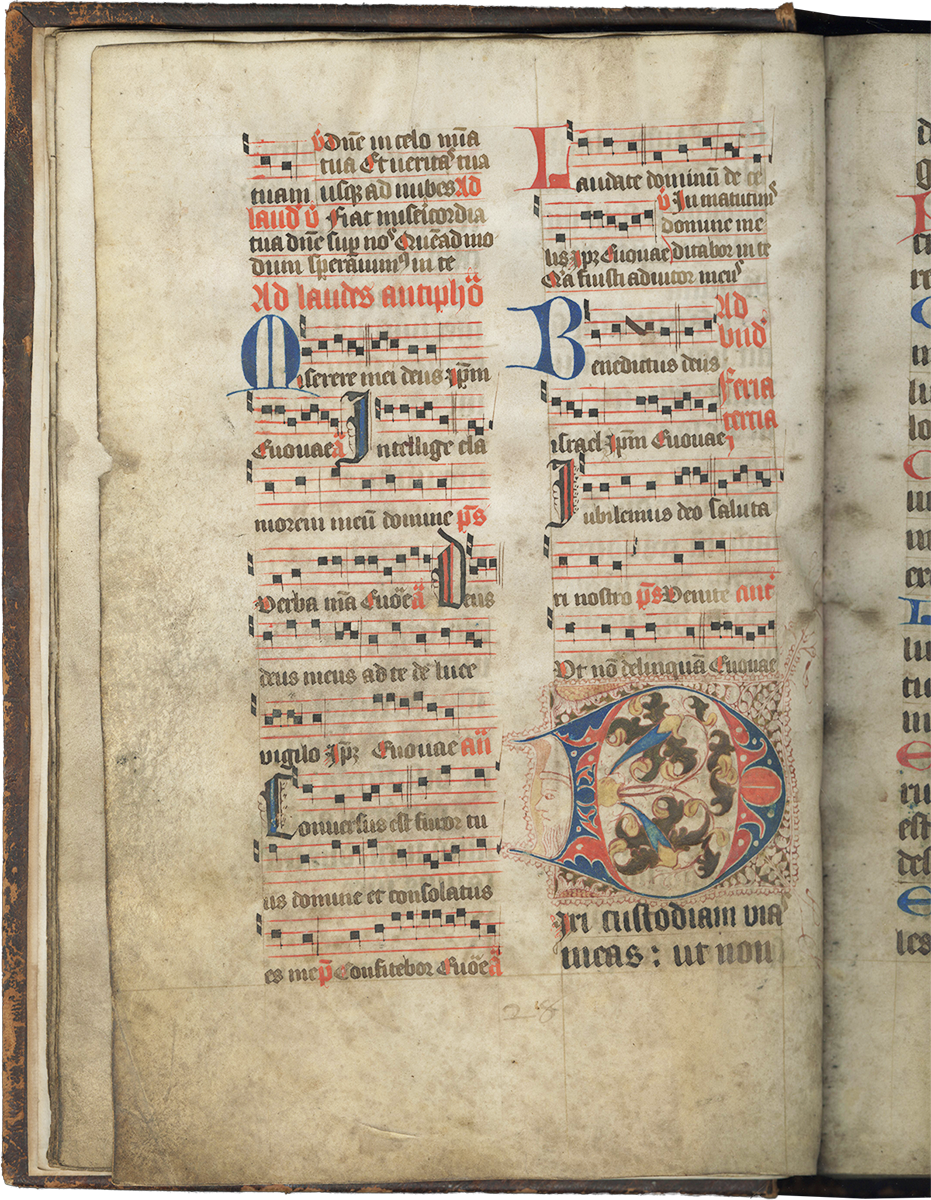 v Dn̄e in celo mīa
tua Et veritas tua
tuam usq; ad nubes Ad
laud v̄ Fiat misericordia
tua dn̄e sup nos Quēadmo
dum speravimus in te
Ad laudes antiphō
Miserere mei deus ip̄m
Euouae ā Intellige cla
morem meū domine p̄s
Verba mīa Euōe ā Deus
deus meus ad te de luce
vigilo ip̄ Euouae añ
Conversus est furor tu
us domine et consolatus
es me p̄ Confitebor Euōe ā
Laudate dominū de ce
v̄ In matutinis
domine me
lis ip̄ Euouae ditabor in te
Q̄a fuisti adiutor meus
Ad
Benedictus deus bn̄d
Feria
tercia
israel ip̄m Euouae
Iubilemus deo saluta
ri nostro p̄s Venite ant
Ut nō delinquā Euouae
Dixi custodiam vias
meas : ut non
28